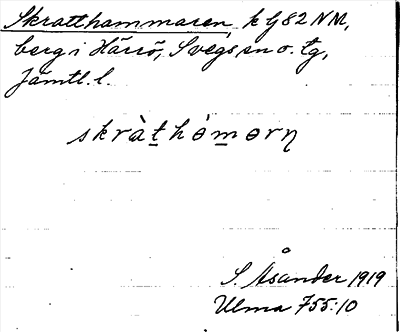 Skratthammaren, k G82 NM,
berg i Härrö, Svegs sn o. tg,
Jämtl. l.
skràt̲hòm̲ərn̥
S. Åsander 1919
Ulma 755:10